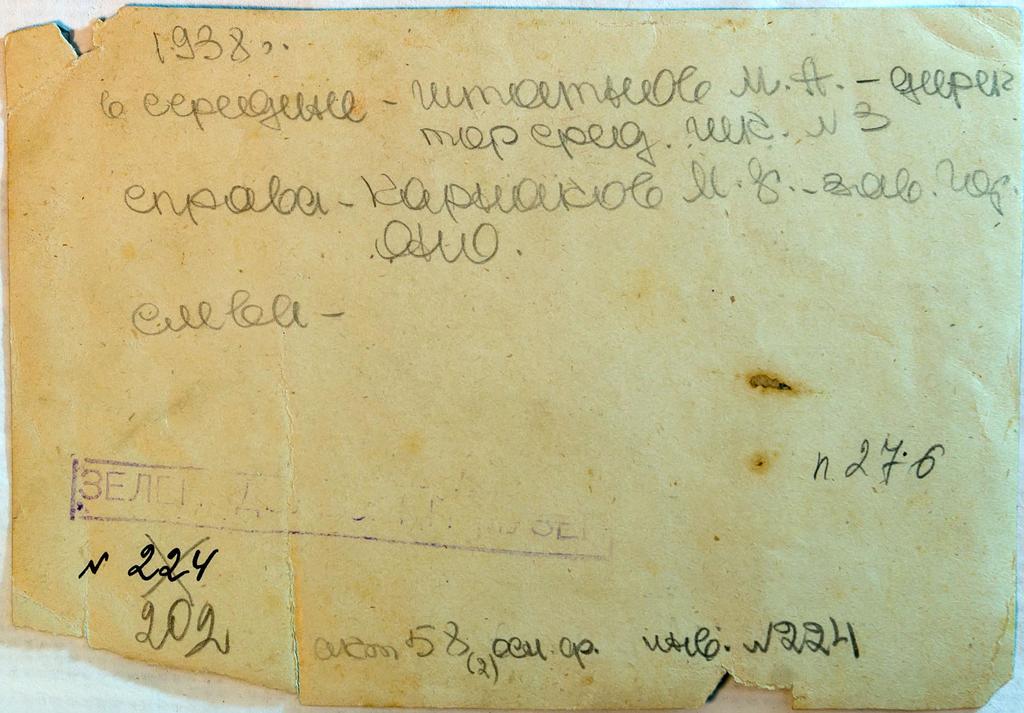 1938г.
в середине - Штатнов М.А. - дирек
тор сред. шк. N 3
справа - Карнаков М. - зав. Гор
ОНО.
слева -
п 27.6
ЗЕЛЕ МУЗЕЙ
N 224
202
акт 58 (2) осн. ф. инв. N 224